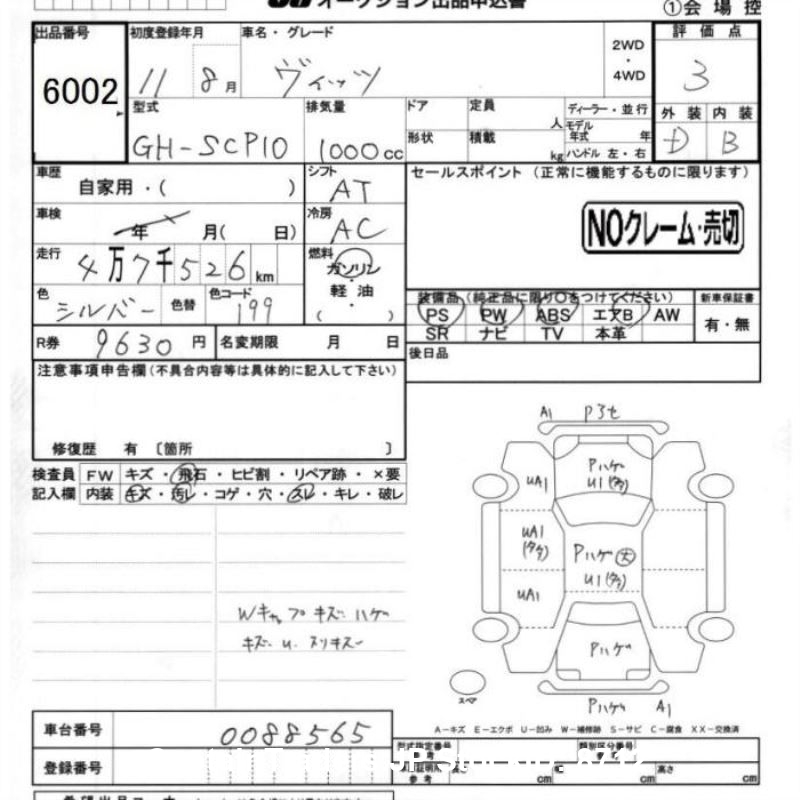 オークション出品申込書
①会場控
出品番号 6002
初度登録年月 11 8月
車名・グレード ヴィッツ
2WD・4WD
評価点 3
外装 D 内装 B
型式 GH-SCP10
排気量 1000cc
ドア 定員 人
形状 積載 kg
ディーラー・並行
モデル年式 年
ハンドル 左・右
車歴 自家用・( )
シフト AT
セールスポイント (正常に機能するものに限ります)
NOクレーム・売切
車検 年 月( 日)
冷房 AC
走行 4万7千526km
燃料 ガソリン・軽油 ( )
色 シルバー 色替 色コード 199
装備品 (純正品に限り○をつけてください) 新車保証書
PS PW ABS エアB AW 有・無
SR ナビ TV 本革
R券 9630円 名変期限 月 日
後日品
注意事項申告欄(不具合内容等は具体的に記入して下さい)
修復歴 有 〔箇所 〕
検査員 FW キズ・飛石・ヒビ割・リペア跡・×要
記入欄 内装 キズ・汚レ・コゲ・穴・スレ・キレ・破レ
A1 P3セ
Pハゲ
UA1 U1(多)
UA1
(多)
Pハゲ(大)
U1(多)
UA1
Wキャップ キズ・ハゲ
キズ・U・スリキズ
Pハゲ
スペア
Pハゲ A1
A-キズ E-エクボ U-凹み W-補修跡 S-サビ C-腐食 XX-交換済
車台番号 0088565
型式指定番号 参考 類別区分番号
登録番号
長さ cm 幅 cm 高さ cm
希望出品コーナー